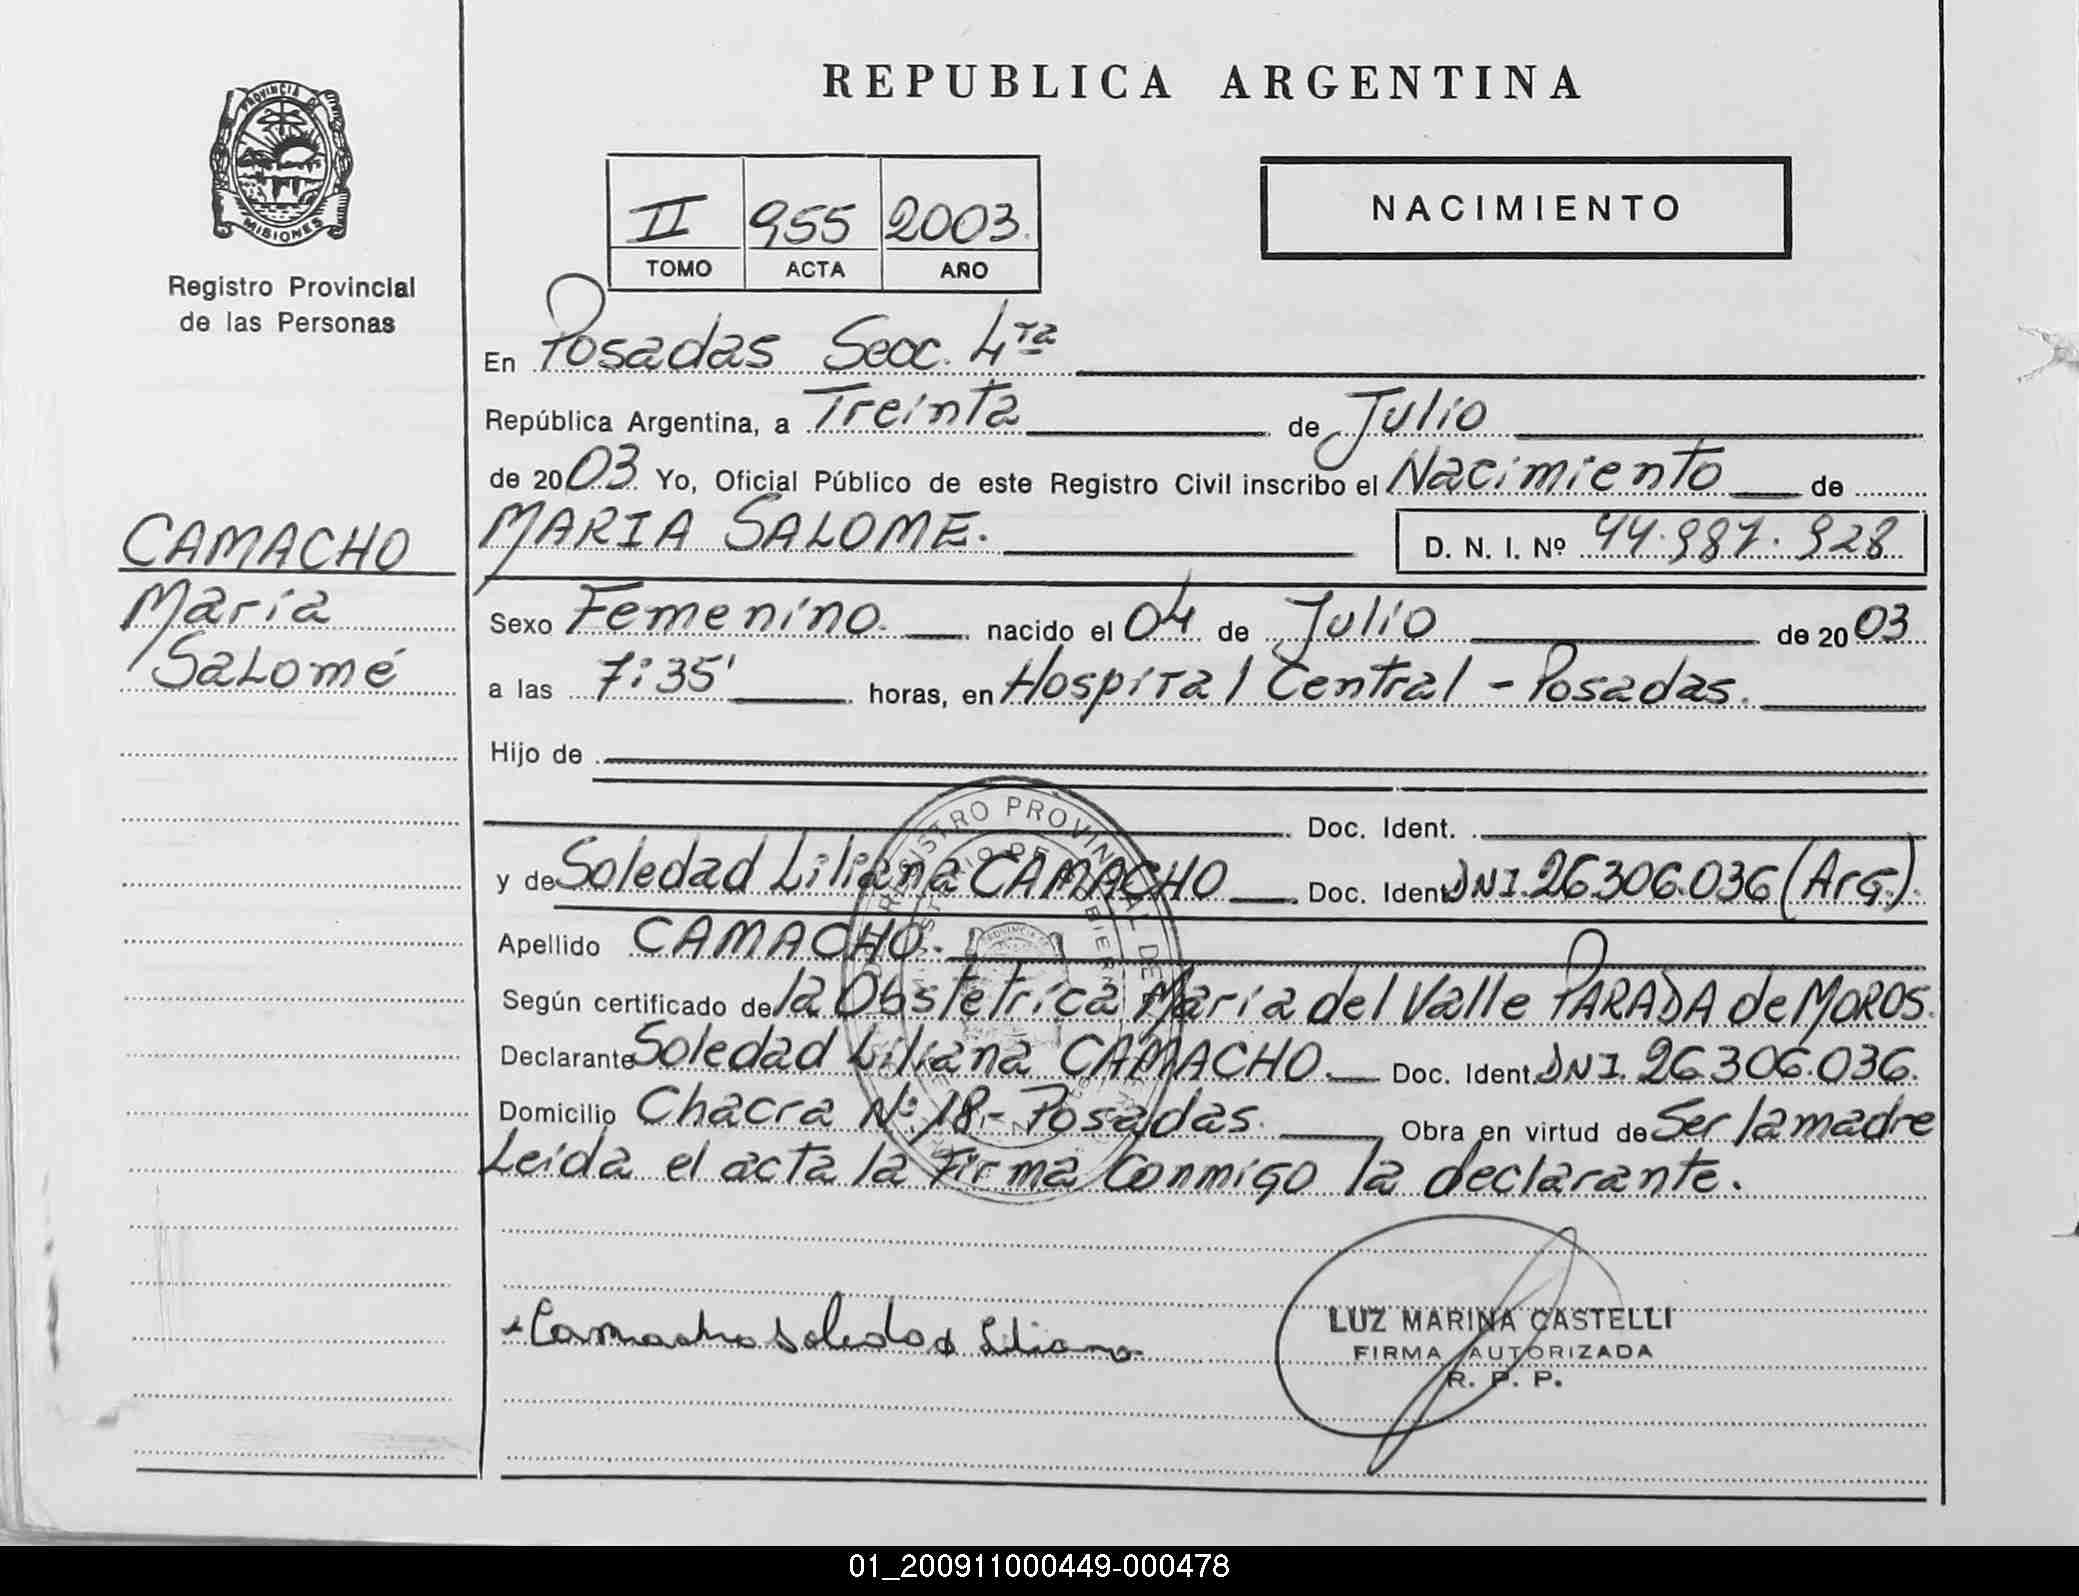 PROVINCIA DE
MISIONES
Registro Provincial
de las Personas
CAMACHO
Maria
Salomé
REPUBLICA ARGENTINA
II 955 2003.
TOMO ACTA AÑO
NACIMIENTO
En Posadas Secc. 4ra
República Argentina, a Treinta de Julio
de 2003. Yo, Oficial Público de este Registro Civil inscribo el Nacimiento de
MARIA SALOME. D. N. I. Nº 44.987.928
Sexo Femenino. nacido el 04 de Julio de 2003
a las 7:35' horas, en Hospital Central - Posadas.
Hijo de
Doc. Ident.
y de Soledad Liliana CAMACHO Doc. Ident. DNI. 26.306.036 (Arg.).
Apellido CAMACHO.
Según certificado de la Obstetrica Maria del Valle PARADA de MOROS.
Declarante Soledad Liliana CAMACHO. Doc. Ident. DNI. 26.306.036.
Domicilio Chacra Nº 18 - Posadas. Obra en virtud de Ser la madre
Leida el acta la Firma Conmigo la declarante.
REGISTRO PROVINCIAL DE
Camacho Soledad Liliana
LUZ MARINA CASTELLI
FIRMA AUTORIZADA
R. P. P.
01_200911000449-000478